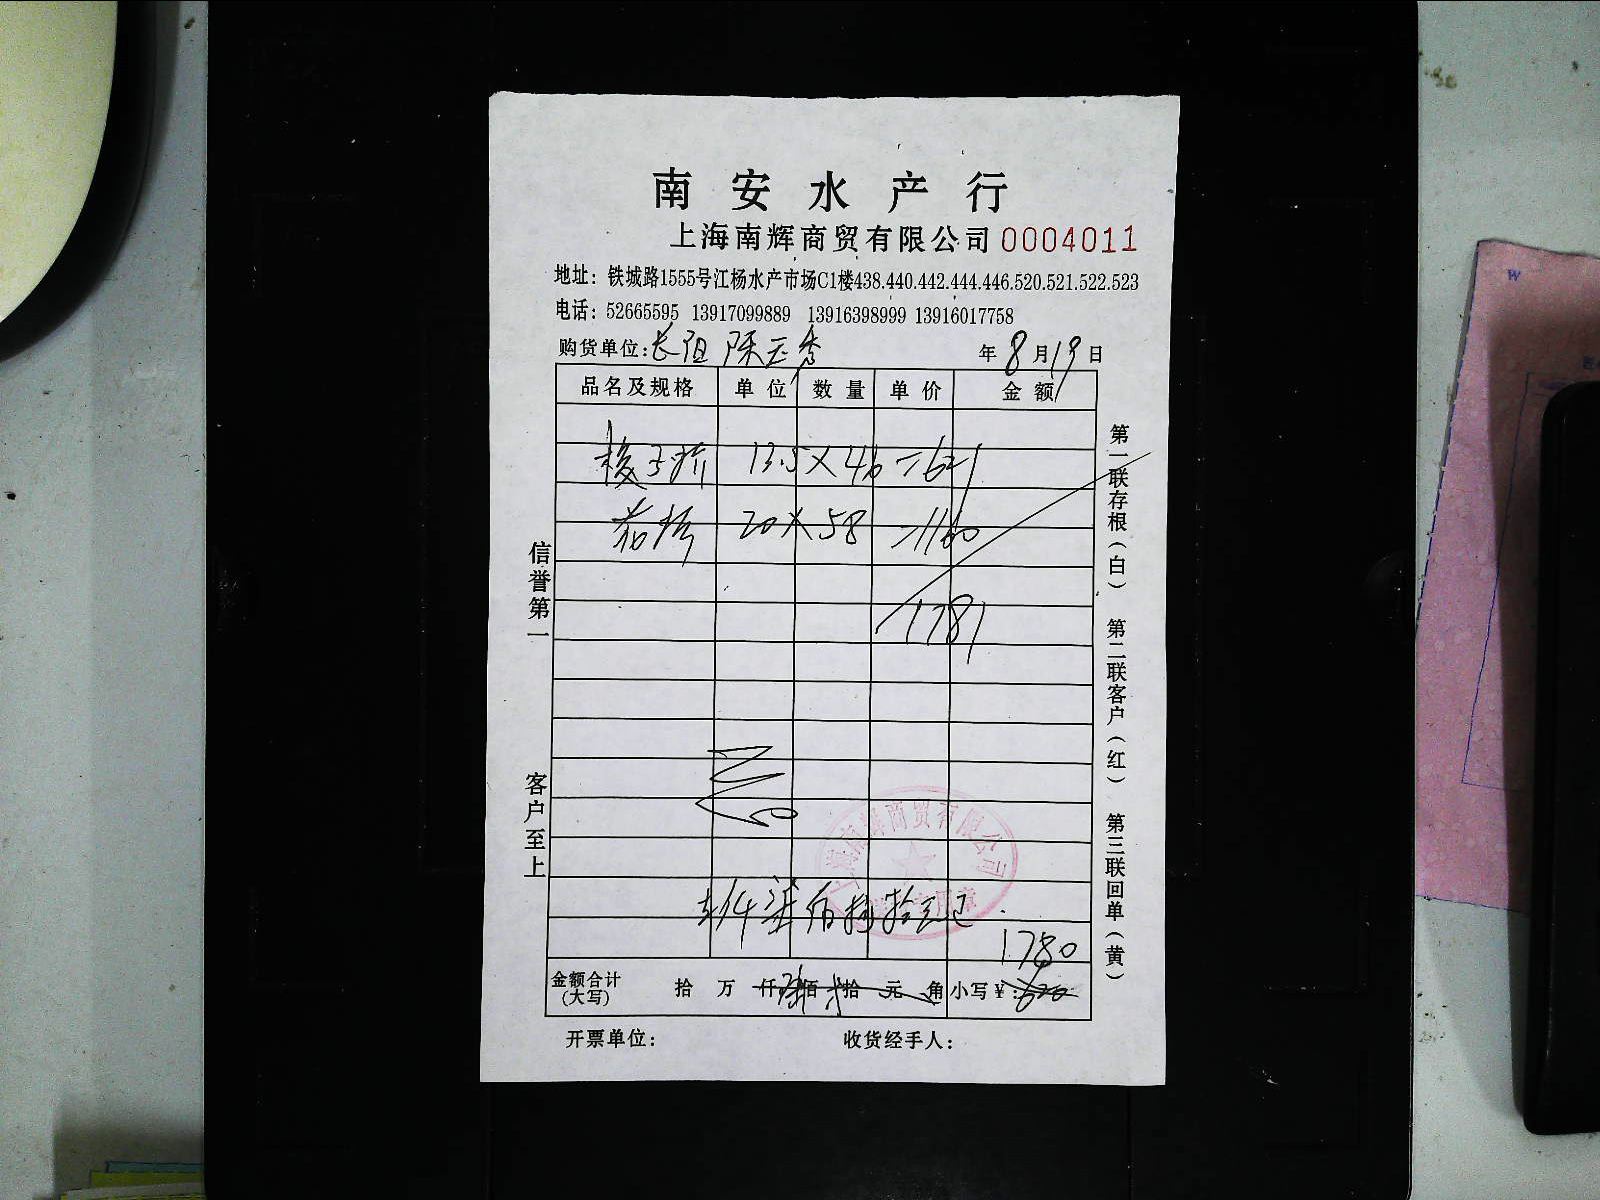 南安水产行
上海南辉商贸有限公司 0004011
地址：铁城路1555号江杨水产市场C1楼438.440.442.444.446.520.521.522.523
电话：52665595 13917099889 13916398999 13916017758
购货单位：陈玉秀 年8月19日
品名及规格 单位 数量 单价 金额
梭子 13.5×46=621
20×58=1160
1781
壹仟柒佰捌拾元正
1780
金额合计（大写） 拾 万 仟 佰 拾 元 角 小写￥：620
开票单位： 收货经手人：
信誉第一
客户至上
第一联存根（白） 第二联客户（红） 第三联回单（黄）
南辉商贸有限公司
W